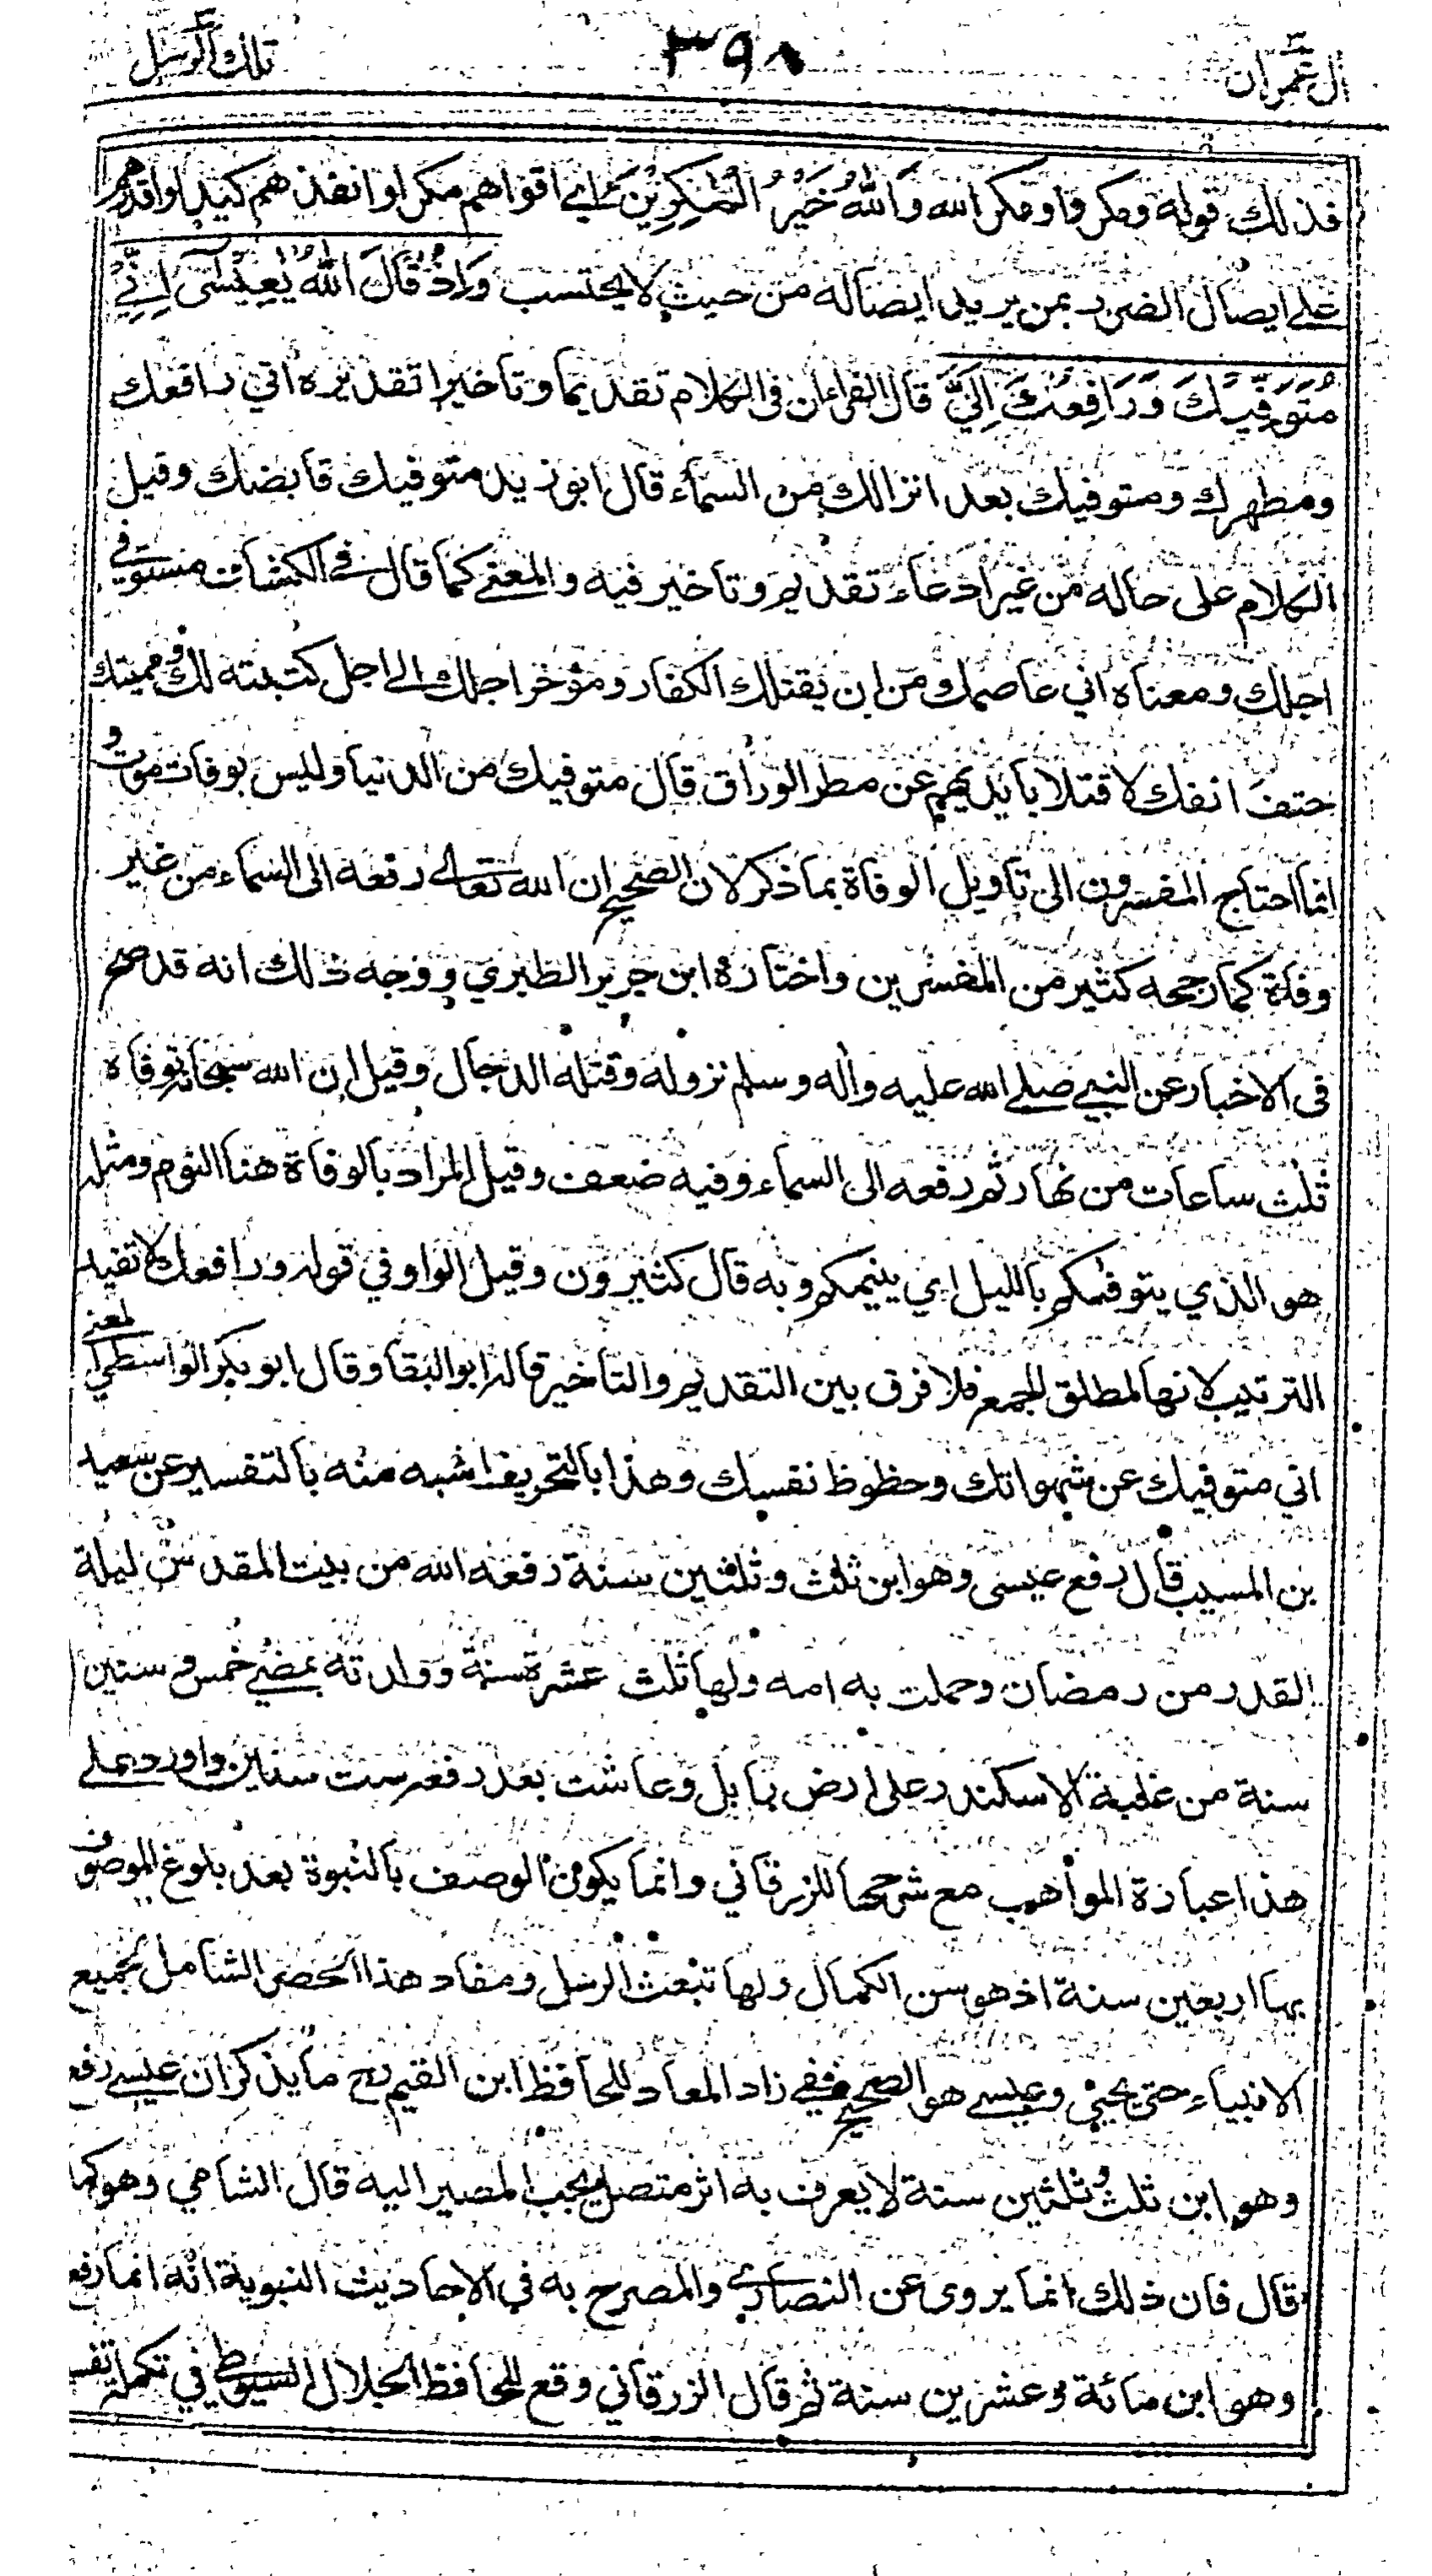 آل عمران ٣٩٨ تلك الرسل
فذلك قوله ومكروا ومكر الله وَاللّٰهُ خَيْرُ الْمٰكِرِيْنَ اي اقواهم مكرا وانفذهم كيدا واقدرهم
على ايصال الضرر بمن يريد ايصاله من حيث لا يحتسب وَاِذْ قَالَ اللّٰهُ يٰعِيْسٰى اِنِّيْ
مُتَوَفِّيْكَ وَرَافِعُكَ اِلَيَّ قال الفراء ان في الكلام تقديما وتاخيرا تقديره اني رافعك
ومطهرك ومتوفيك بعد انزالك من السماء قال ابو زيد متوفيك قابضك وقيل
الكلام على حاله من غير ادعاء تقديم وتاخير فيه والمعنى كما قال في الكشاف مستوفي
اجلك ومعناه اني عاصمك ومن ان يقتلك الكفار ومؤخر اجلك الى اجل كتبته لك ومميتك
حتف انفك لا قتلا بايديهم عن مطر الوراق قال متوفيك من الدنيا وليس بوفات موت و
انما احتاج المفسرون الى تاويل الوفاة بما ذكر لان الصحيح ان الله تعالى رفعه الى السماء من غير
وفاة كما رجحه كثير من المفسرين واختاره ابن جرير الطبري ووجه ذلك انه قد صح
في الاخبار عن النبي صلى الله عليه واٰله وسلم نزوله وقتله الدجال وقيل ان الله سبحانه توفاه
ثلث ساعات من نهار ثم رفعه الى السماء وفيه ضعف وقيل المراد بالوفاة هنا النوم ومثله
هو الذي يتوفٰكم بالليل اي ينيمكم وبه قال كثيرون وقيل الواو في قوله ورافعك لا تفيد
الترتيب لانها لمطلق الجمع فلا فرق بين التقديم والتاخير قاله ابو البقا وقال ابو بكر الواسطي المعنى
اني متوفيك عن شهواتك وحظوظ نفسك وهذا بالتحريف اشبه منه بالتفسير عن سعيد
بن المسيب قال رفع عيسى وهو ابن ثلث وثلثين سنة رفعه الله من بيت المقدس ليلة
القدر من رمضان وحملت به امه ولها ثلث عشرة سنة وولدته بمضي خمس وستين
سنة من غلبة الاسكندر على ارض بابل وعاشت بعد رفعه ست سنين واورد على
هذا عبارة المواهب مع شرحها للزرقاني وانما يكون الوصف بالنبوة بعد بلوغ الموصوف
بها اربعين سنة اذ هو سن الكمال ولها تبعث الرسل ومفاد هذا الحصر الشامل لجميع
الانبياء حتى يحيى وعيسى هو الصحيح ففي زاد المعاد للحافظ ابن القيم رح ما يذكر ان عيسى رفع
وهو ابن ثلث وثلثين سنة لا يعرف به اثر متصل يجب المصير اليه قال الشامي وهو كما
قال فان ذلك انما يروى عن النصارى والمصرح به في الاحاديث النبوية انه انما رفع
وهو ابن مائة وعشرين سنة ثم قال الزرقاني وقع للحافظ الجلال السيوطي في تكملة تفسير